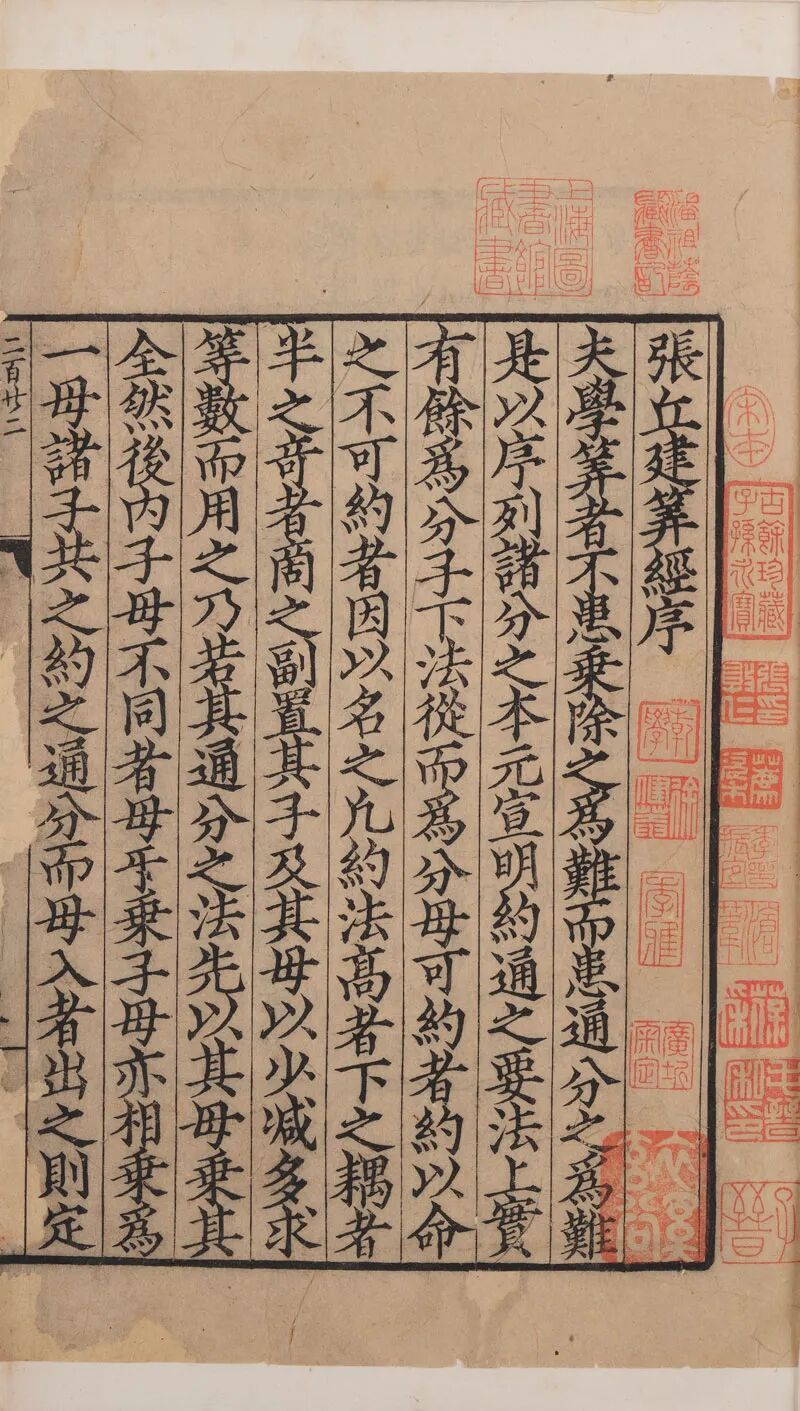 張丘建筭經序
夫學筭者不患乗除之爲難而患通分之爲難
是以序列諸分之本元宣明約通之要法上實
有餘爲分子下法從而爲分母可約者約以命
之不可約者因以名之凡約法髙者下之耦者
半之竒者商之副置其子及其母以少减多求
等數而用之乃若其通分之法先以其母乗其
全然後内子母不同者母乎乗子母亦相乗爲
一母諸子共之約之通分而母入者出之則定
二百廿二
上海圖書館藏書
潘祖蔭藏書記
宋本
古餘珍藏子孫永寶